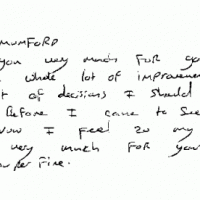 MUMFORD
you very much FOR yo
whole lot of improvemen
t of decisions I should
Before I came to See
Now I Feel so my
very much For your
per Fine.